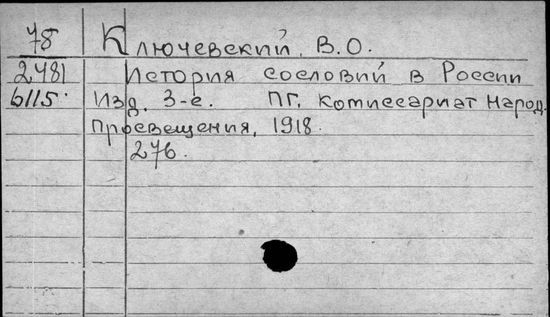 78 Ключевский, В.О.
2481 История сословий в России
6115. Изд. 3-е. ПГ. Комиссариат Народ.
Просвещения, 1918.
276.